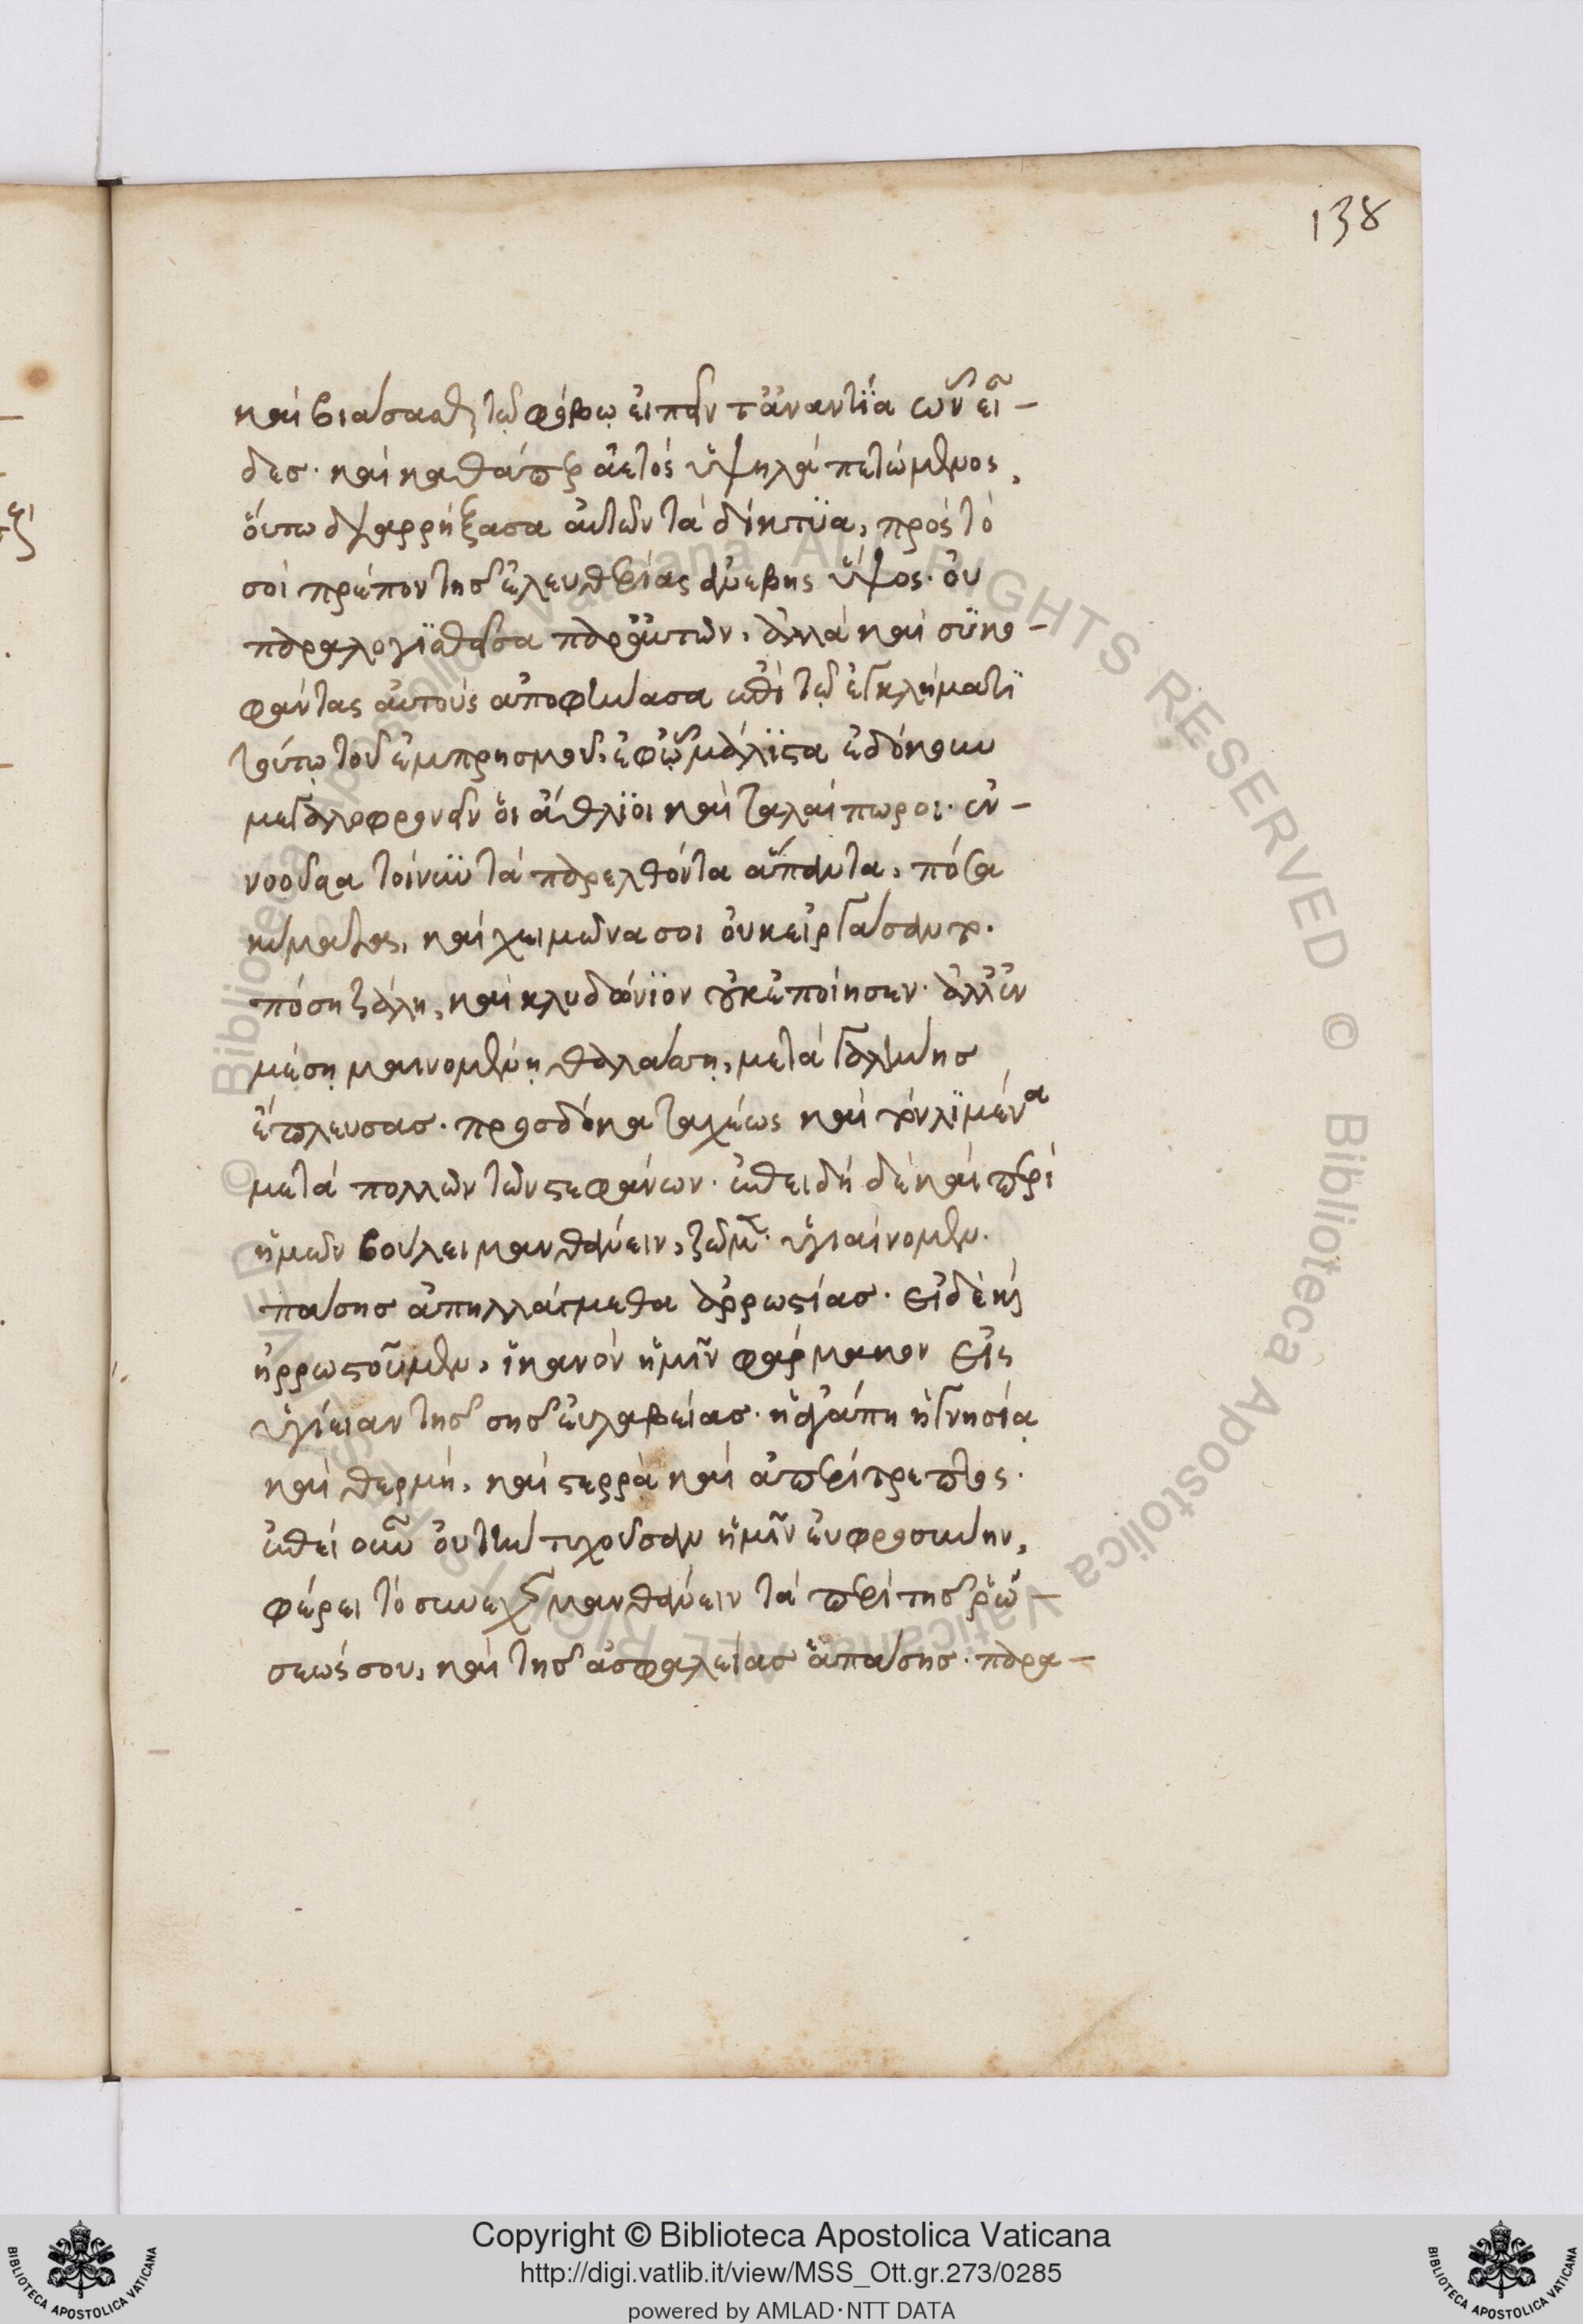 138
καὶ βιάσασθαι τῷ φόβῳ εἰπεῖν τἀναντία ὧν εἶ-
δες. καὶ καθάπερ ἀετὸς ὑψηλὰ πετώμενος,
οὕτω διαρρήξασα αὐτῶν τὰ δίκτυα, πρὸς τὸ
σοὶ πρέπον τῆς ἐλευθερίας ἀνέβης ὕψος. οὐ
παραλογισθεῖσα παρ' αὐτῶν, ἀλλὰ καὶ συκο-
φάντας αὐτοὺς ἀποφήνασα ἐπὶ τῷ ἐγκλήματι
τούτῳ τοῦ ἐμπρησμοῦ, ἐφ' ᾧ μάλιστα ἐδόκουν
μεγαλοφρονεῖν οἱ ἄθλιοι καὶ ταλαίπωροι. ἐν-
νοοῦσα τοίνυν τὰ παρελθόντα ἅπαντα, πόσα
κύματος, καὶ χειμῶνα σοι οὐκ εἰργάσαντο.
πόση ζάλη, καὶ κλυδώνιον οὐκ ἐποίησεν. ἀλλ' ἐν
μέσῃ μαινομένῃ θαλάσσῃ, μετὰ γαλήνης
ἔπλευσας. προσδόκα ταχέως καὶ τὸν λιμένα
μετὰ πολλῶν τῶν στεφάνων. ἐπειδὴ δὲ καὶ περὶ
ἡμῶν βούλει μανθάνειν, ζῶμεν. ὑγιαίνομεν.
πάσης ἀπηλλάγμεθα ἀρρωστίας. εἰ δὲ καὶ
ἠρρωστοῦμεν, ἱκανὸν ἡμῖν φάρμακον εἰς
ὑγίειαν τῆς σῆς εὐλαβείας. ἡ ἀγάπη ἡ γνησία
καὶ θερμή, καὶ στερρὰ καὶ ἀπερίτρεπτος.
ἐπεὶ οὖν οὐ τὴν τυχοῦσαν ἡμῖν εὐφροσύνην,
φέρει τὸ συνεχῶς μανθάνειν τὰ περὶ τῆς ῥώ-
σεώς σου, καὶ τῆς ἀσφαλείας ἁπάσης. παρα-
Copyright © Biblioteca Apostolica Vaticana
http://digi.vatlib.it/view/MSS_Ott.gr.273/0285
powered by AMLAD·NTT DATA